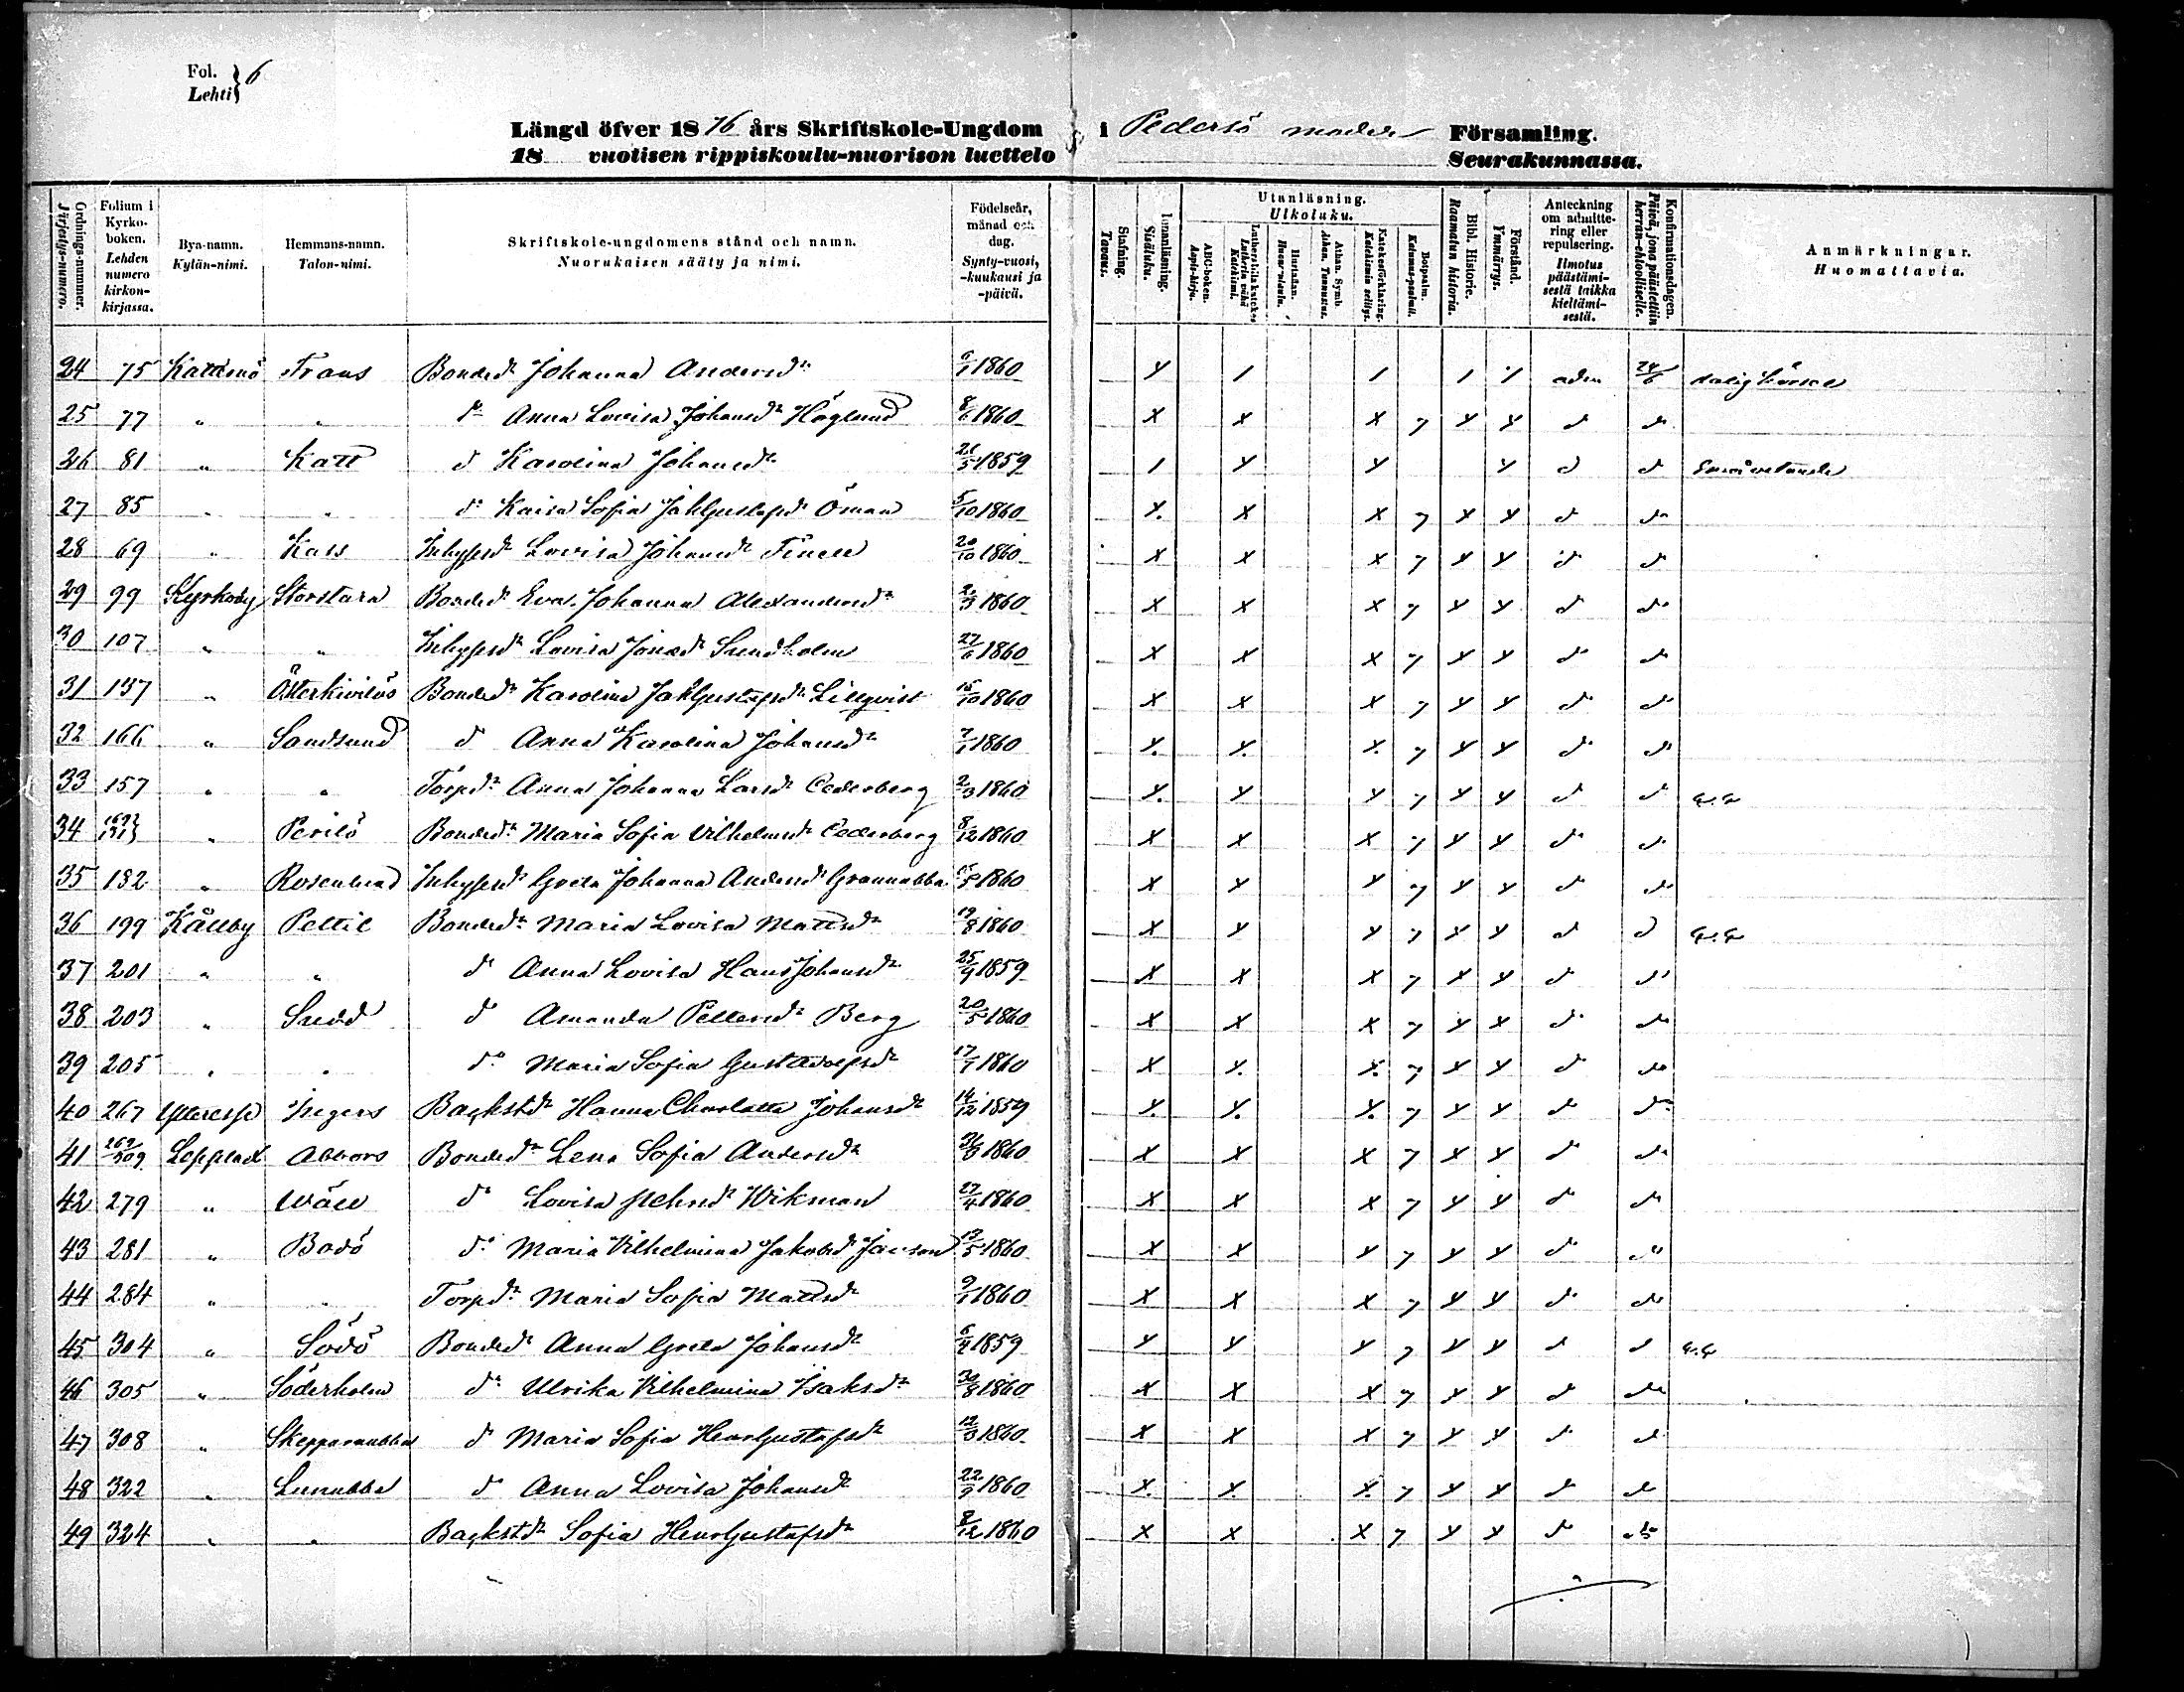 Fol. 6
Lehti
Längd öfver 1876 års Skriftskole-Ungdom i Pedersö moder Församling.
18 vuotisen rippiskoulu-nuorison luettelo Seurakunnassa.
Ordnings-nummer. Järjestys-numero.
Folium i Kyrko-boken. Lehden numero kirkon-kirjassa.
Bya-namn. Kylän-nimi.
Hemmans-namn. Talon-nimi.
Skriftskole-ungdomens stånd och namn. Nuorukaisen sääty ja nimi.
Födelseår, månad och dag. Synty-vuosi, -kuukausi ja -päivä.
Stafning. Tavaus.
Innanläsning. Sisäluku.
Utanläsning. Ulkoluku.
ABC-boken. Aapis-kirja.
Luthers lilla kateches Lutherin vähä Katekismi.
Hustaflan. Huoneentaulu.
Athan. Symb. Athan. Tunnustus.
Katekesförklaring. Katekismin selitys.
Botpsalm. Katumus-psalmi.
Bibl. Historie. Raamatun historia.
Förstånd. Ymmärrys.
Anteckning om admitte-ring eller repulsering. Ilmotus päästämi-sestä taikka kieltämi-sestä.
Konfirmationsdagen. Päivä, jona päästettiin herran-ehtoolliselle.
Anmärkningar. Huomattavia.
24 75 Kattilnö Frans Bonded:r Johanna Andersd:r 6/1 1860 adm 24/6 dålig hörsel
25 77 " " d:o Anna Lovisa Johansd:r Höglund 8/6 1860 d:o d:o
26 81 " Katt d:o Karolina Johansd:r 26/5 1859 d:o d:o
27 85 " " d:o Kaisa Sofia JohGustafsd:r Öman 5/10 1860 d:o d:o
28 69 " Kass Inhysesd:r Lovisa Johansd:r Finell 20/10 1860 d:o d:o
29 99 Kyrkoby Storstara Bonded:r Eva Johanna Alexandersd:r 2/3 1860 d:o d:o
30 107 " " Inhysesd:r Lovisa Jonasd:r Sundholm 27/6 1860 d:o d:o
31 137 " Österkivilös Bonded:r Karolina JakGustafsd:r Lillqvist 15/10 1860 d:o d:o
32 166 " Sandsund d:o Anna Karolina Johansd:r 7/1 1860 d:o d:o
33 157 " " Torpd:r Anna Johanna Larsd:r Cederberg 2/3 1860 d:o d:o
34 " Perilö Bonded:r Maria Sofia Vilhelmsd:r Cederberg 8/12 1860 d:o d:o
35 182 " Rosenlund Inhysesd:r Greta Johanna Andersd:r Grannabba 1860 d:o d:o
36 199 Kållby Pettil Bonded:r Maria Lovisa Mattsd:r 19/8 1860 d:o d:o
37 201 " " d:o Anna Lovisa HansJohansd:r 25/9 1859 d:o d:o
38 203 " Snedd d:o Amanda Pettersd:r Berg 20/5 1860 d:o d:o
39 205 " " d:o Maria Sofia GustAdolfsd:r 17/7 1860 d:o d:o
40 267 Ytteresse Ingers Backstd:r Hanna Charlotta Johansd:r 14/12 1859 d:o d:o
41 Lepplax Abbors Bonded:r Lena Sofia Andersd:r 1860 d:o d:o
42 279 " Wäll d:o Lovisa Wikman 27/4 1860 d:o d:o
43 281 " Bodö d:o Maria Vilhelmina Jakobsd:r Janson 13/5 1860 d:o d:o
44 284 " " Torpd:r Maria Sofia Mattsd:r 9/1 1860 d:o d:o
45 304 " Södö Bonded:r Anna Greta Johansd:r 1859 d:o d:o
46 305 " Söderholm d:o Ulrika Vilhelmina Isaksd:r 30/8 1860 d:o d:o
47 308 " Skepparnabba d:o Maria Sofia HenrGustafsd:r 1860 d:o d:o
48 322 " Lunnabba d:o Anna Lovisa Johansd:r 22/9 1860 d:o d:o
49 324 " " Backstd:r Sofia HenrGustafsd:r 8/12 1860 d:o d:o